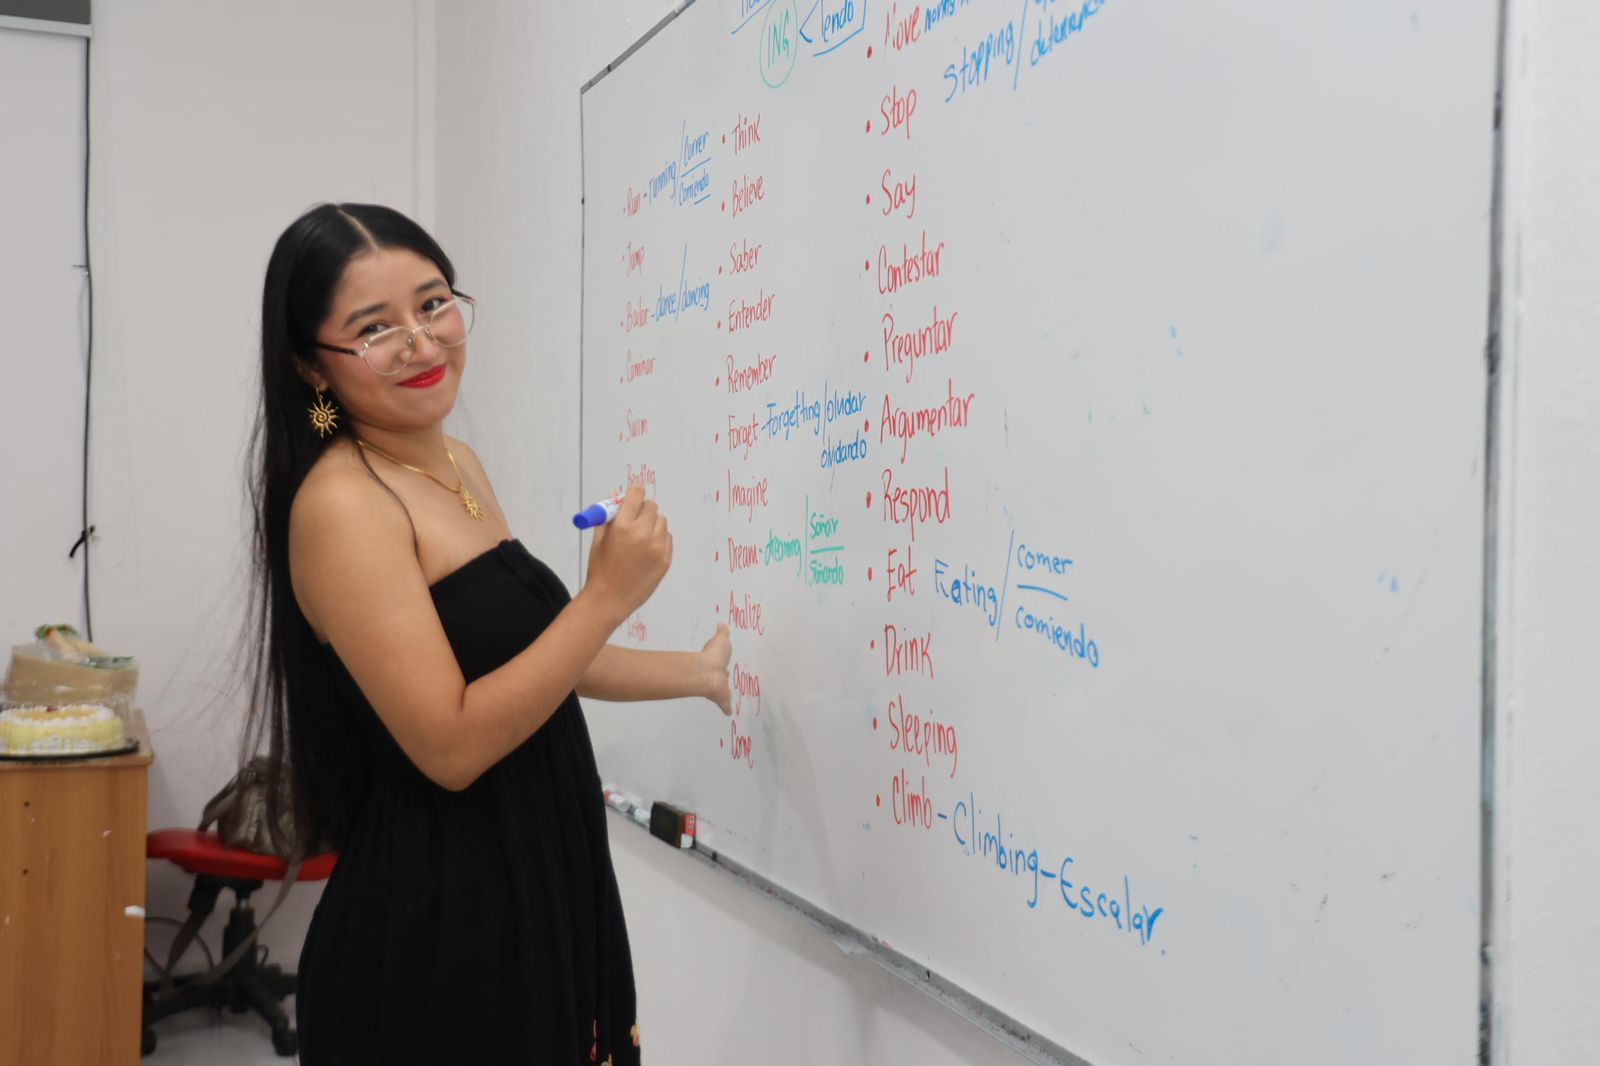 ING < iendo
• Run - running / Correr
Corriendo
• Jump
• Bailar - dance / dancing
• Caminar
• Swim
• Reading
Listen
• Think
• Believe
• Saber
• Entender
• Remember
• Forget - Forgetting / olvidar
olvidando
• Imagine
• Dream - dreaming / Soñar
Soñando
• Analize
going
• Come
• Move
• Stop stopping /
• Say
• Contestar
• Preguntar
• Argumentar
• Respond
• Eat Eating / comer
comiendo
• Drink
• Sleeping
• Climb - Climbing - Escalar.